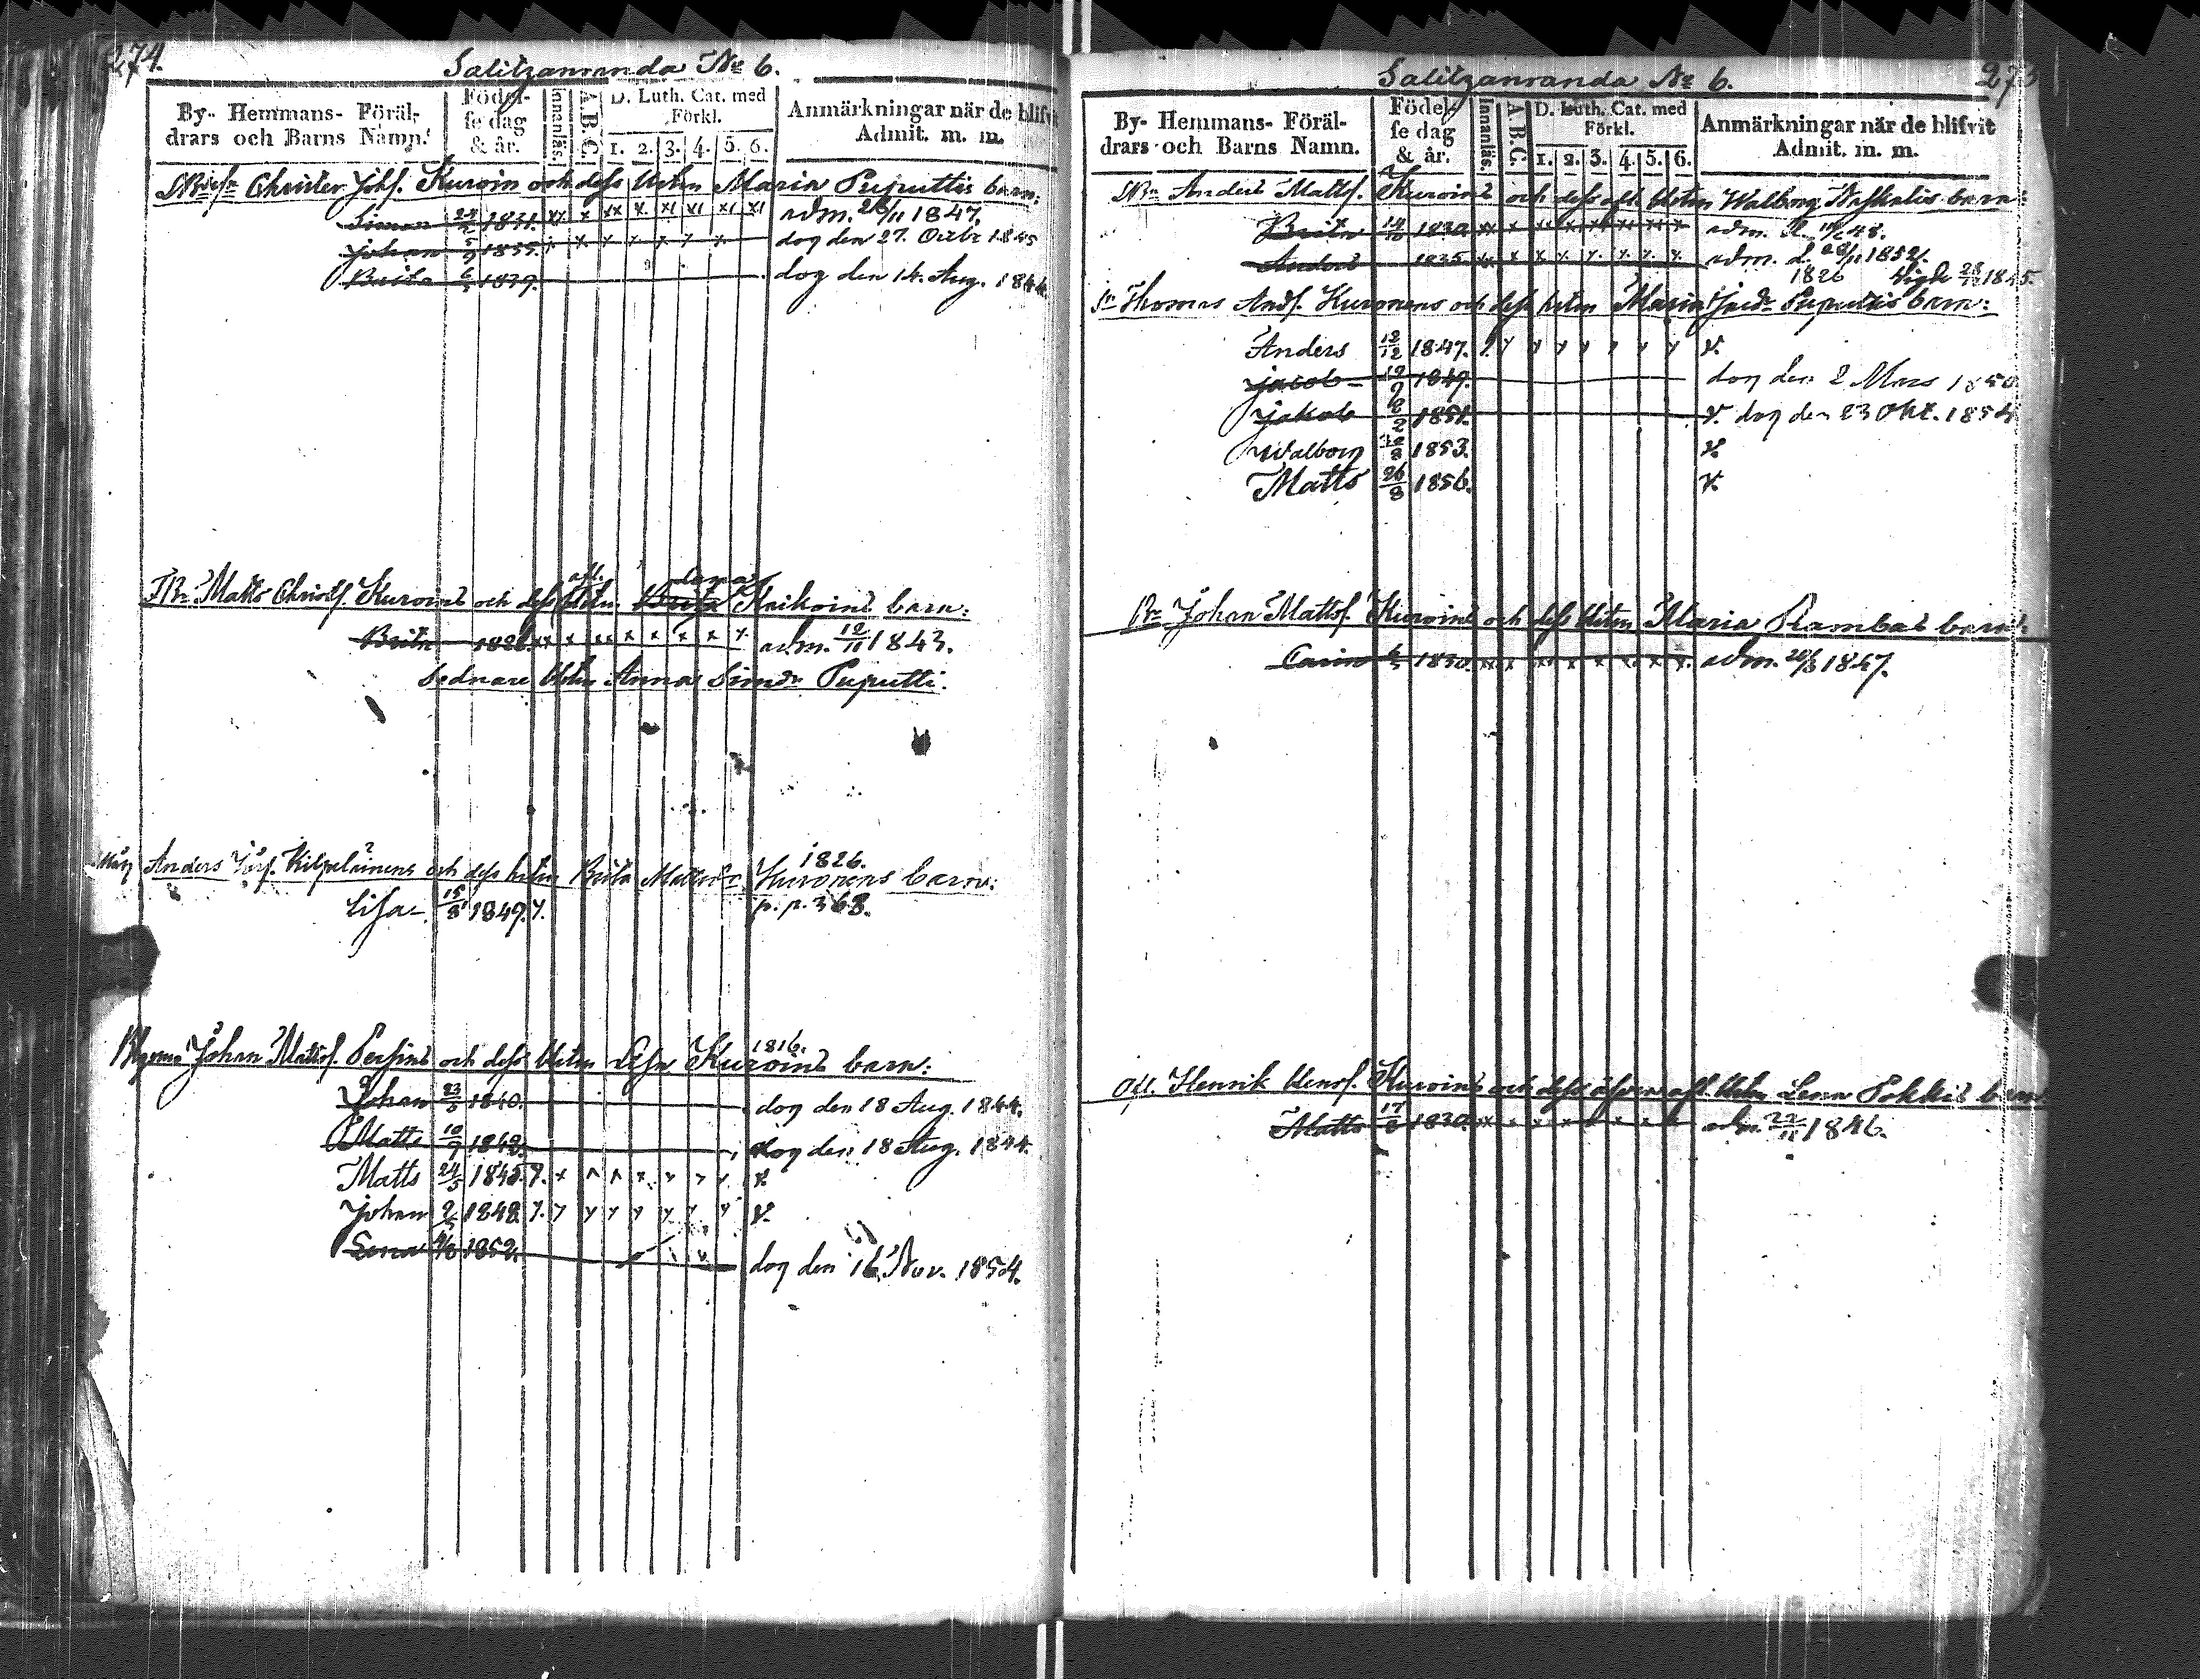 274.
Salitzanranda No 6.
By- Hemmans- Föräl-
drars och Barns Namn.
Födel-
se dag
& år.
Innanläs.
A.B.C.
D. Luth. Cat. med
Förkl.
1. 2. 3. 4. 5. 6.
Anmärkningar när de blifvit
Admit. m. m.
Christer Johs. Kuroin och dess Hstn Maria Puputtis barn:
Simon 1831. x x xx x xi xi xi xi adm. 1847.
Johan 5/9 1835. x x x x x x x dog den 27. Octbr 1845
Brita 6/ 1839. dog den 14. Aug. 1844
Matts Christs. Kuroins och dess afl. Hstn Brita Kaikoins barn:
Brita 1826. xx x xx x x x x x. adm. 12/11 1843.
Sednare Hstn Anna Simsdr Puputti.
1826.
Anders Kilpeläinens och dess hstn Brita Mattsdr Kuronens barn:
Lisa 15/8 1849. y. p. p. 368.
1816.
Johan Mattss. Persins och dess Hstn Lisa Kuroins barn:
Johan 23/5 1840. dog den 18 Aug. 1844.
Matts 10/9 1842. dog den 18 Aug. 1844.
Matts 24/5 1845. y. x
Johan 2/5 1848. y. y y y y y y y v.
Lena 1852. dog den 16 Nov. 1854.
Salitzanranda No 6.
By- Hemmans- Föräl-
drars och Barns Namn.
Födel-
se dag
& år.
Innanläs.
A.B.C.
D. Luth. Cat. med
Förkl.
1. 2. 3. 4. 5. 6.
Anmärkningar när de blifvit
Admit. m. m.
Anders Mattss. Kuroins och dess afl. Hstn Walborg barn:
Brita 1830 adm. d. 48.
Anders 1835. adm. d. 28/11 1852.
1826 1845.
Thomas Ands. Kuronens och dess hstn Maria Puputtis barn:
Anders 12/12 1847. v.
Jacob 19/9 1849. dog den 2 Mars 1850
Jakob 2/2 1851. v. dog den 23 Okt. 1854
Walborg 1853. v.
Matts 26/8 1856. v.
Johan Mattss. Kuroins och dess Hstn Maria Rambas barn:
Carin 1830. adm. 28/3 1847.
Henrik Henrs. Kuroins och dess afl. Hstn Lena Pokkis barn
Matts 17/8 1830. adm. 22/11 1846.